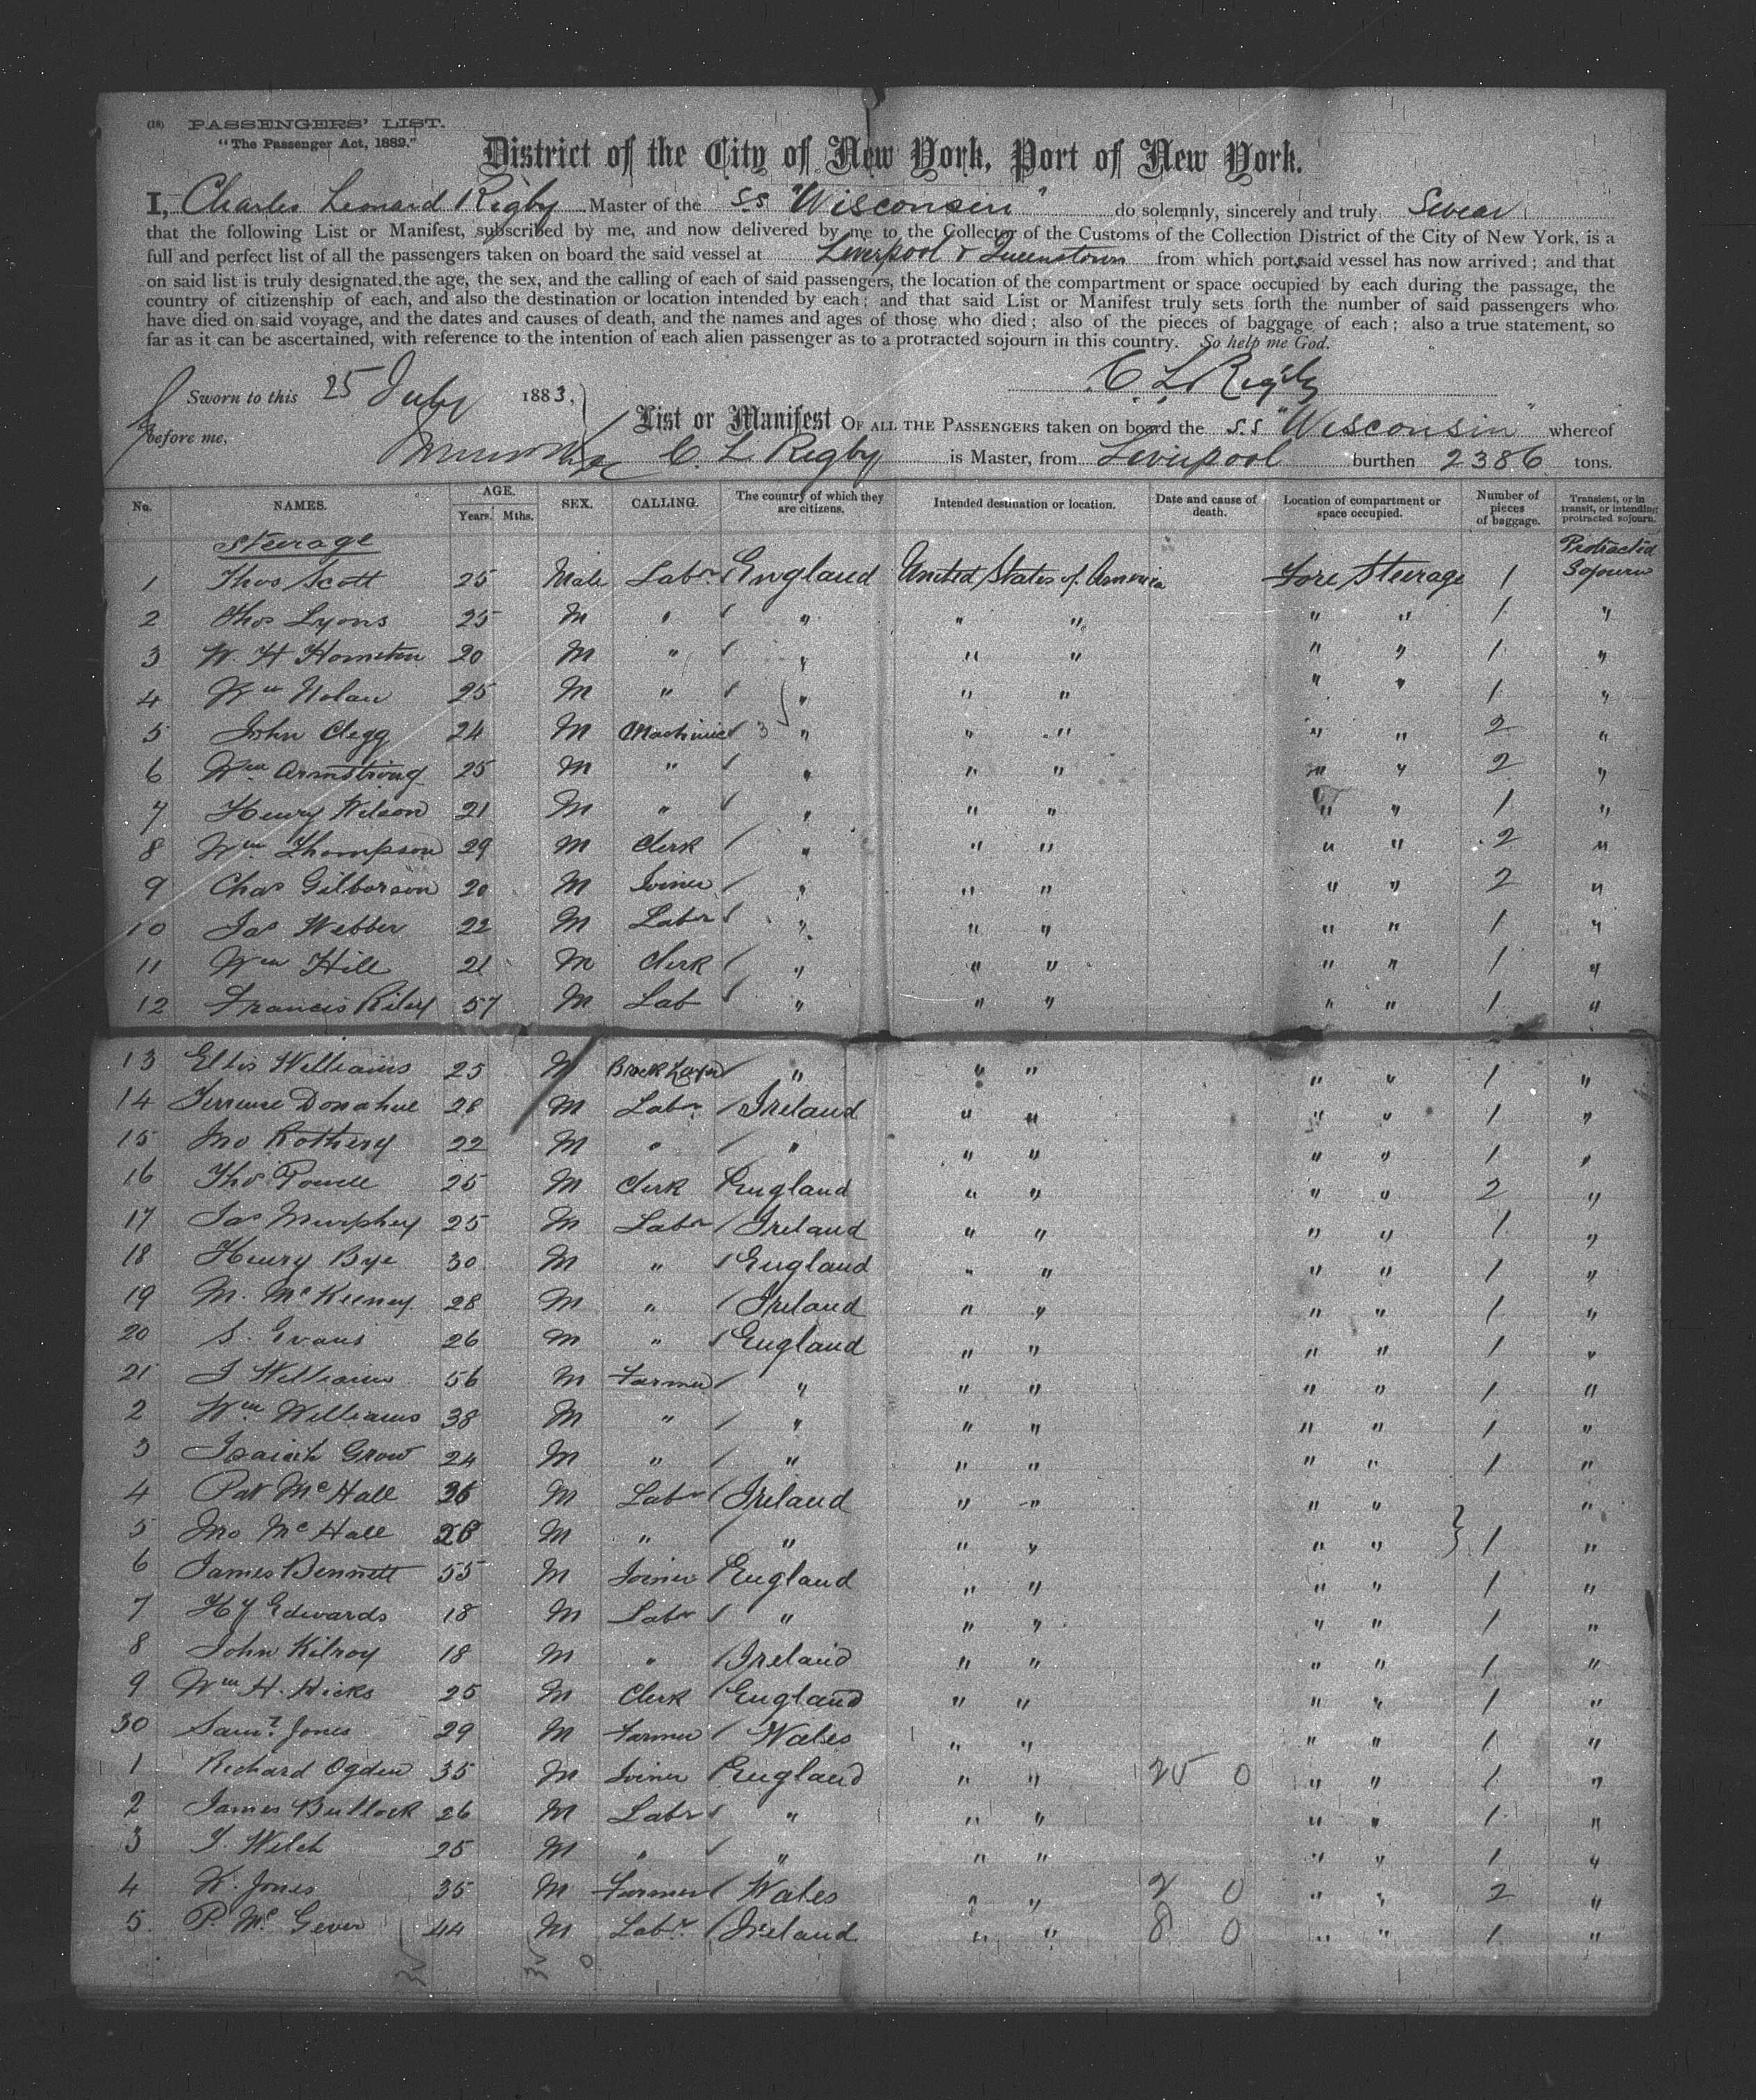 (18) PASSENGERS' LIST.
"The Passenger Act, 1882."
District of the City of New York, Port of New York.
I, Charles Leonard Rigby Master of the S.S "Wisconsin" do solemnly, sincerely and truly Swear
that the following List or Manifest, subscribed by me, and now delivered by me to the Collector of the Customs of the Collection District of the City of New York, is a
full and perfect list of all the passengers taken on board the said vessel at Liverpool & Queenstown from which ports said vessel has now arrived; and that
on said list is truly designated the age, the sex, and the calling of each of said passengers, the location of the compartment or space occupied by each during the passage, the
country of citizenship of each, and also the destination or location intended by each; and that said List or Manifest truly sets forth the number of said passengers who
have died on said voyage, and the dates and causes of death, and the names and ages of those who died; also of the pieces of baggage of each; also a true statement, so
far as it can be ascertained, with reference to the intention of each alien passenger as to a protracted sojourn in this country. So help me God.
C. L. Rigby
Sworn to this 25 July 1883,
before me.
List or Manifest OF ALL THE PASSENGERS taken on board the S.S "Wisconsin" whereof
C. L. Rigby is Master, from Liverpool burthen 2386 tons.
No. NAMES. AGE. Years. Mths. SEX. CALLING. The country of which they are citizens. Intended destination or location. Date and cause of death. Location of compartment or space occupied. Number of pieces of baggage. Transient, or in transit, or intending protracted sojourn.
Steerage
1 Thos Scott 25 Male Labr England United States of America Fore Steerage 1 Protracted Sojourn
2 Thos Lyons 25 M " " " " " " 1 "
3 W. H Hamilton 20 M " " " " " " 1 "
4 Wm Nolan 25 M " " " " " " 1 "
5 John Clegg 24 M Machinic 3 " " " " " 2 "
6 Wm Armstrong 25 M " " " " " " 2 "
7 Henry Wilson 21 M " " " " " " 1 "
8 Wm Thompson 29 M Clerk " " " " " 2 "
9 Chas Gilborson 20 M Joiner " " " " " 2 "
10 Jas Webber 22 M Labr " " " " " 1 "
11 Wm Hill 21 M Clerk " " " " " 1 "
12 Francis Riley 57 M Lab " " " " " 1 "
13 Ellis Williams 25 M Brick Layer " " " " " 1 "
14 Terrence Donahue 28 M Labr Ireland " " " " 1 "
15 Jno Rothery 22 M " " " " " " 1 "
16 Thos Powell 25 M Clerk England " " " " 2 "
17 Jas Murphey 25 M Labr Ireland " " " " 1 "
18 Henry Bye 30 M " England " " " " 1 "
19 M. McKeeney 28 M " Ireland " " " " 1 "
20 S. Evans 26 M " England " " " " 1 "
21 J Williams 56 M Farmer " " " " " 1 "
2 Wm Williams 38 M " " " " " " 1 "
3 Isaiah Grow 24 M " " " " " " 1 "
4 Pat McHale 36 M Labr Ireland " " " " "
5 Jno McHale 28 M " " " " " " } 1 "
6 James Bennett 55 M Joiner England " " " " 1 "
7 Hy Edwards 18 M Labr " " " " " 1 "
8 John Kilroy 18 M " Ireland " " " " 1 "
9 Wm H. Hicks 25 M Clerk England " " " " 1 "
30 Saml Jones 29 M Farmer Wales " " " " 1 "
1 Richard Ogden 35 M Joiner England " " 25 0 " " 1 "
2 James Bullock 26 M Labr " " " " " 1 "
3 J. Welch 25 M " " " " " " 1 "
4 W. Jones 35 M Farmer Wales " " 2 0 " " 2 "
5 P. Mc Gever 44 M Labr Ireland " " 8 0 " " 1 "